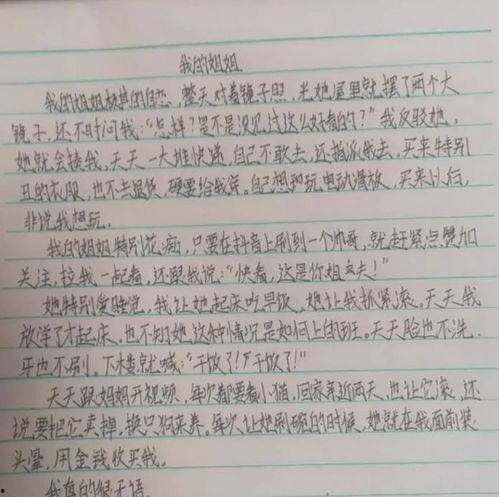 我的姐姐
我的姐姐极其的自恋,整天对着镜子照,光她屋里就摆了两个大
镜子,还不时问我:“怎样?是不是没见过这么好看的?”我反驳她,
她就会揍我,天天一大堆快递,自己不敢去,还指派我去,买来特别
丑的衣服,也不去退货,硬要给我穿。自己想玩电动滑板,买来以后,
非说我想玩。
我的姐姐特别花痴,只要在抖音上刷到一个帅哥,就赶紧点赞加
关注,拉我一起看,还跟我说:“快看,这是你姐夫!”
她特别爱睡觉,我让她起床吃早饭,她让我抓紧滚。天天我
放学了才起床。也不知她这种情况是如何上的班。天天脸也不洗,
牙也不刷。下楼就喊:“干饭了!干饭了!”
天天跟妈妈开视频,每次都要看小猫,回家亲近两天,也让它滚,还
说要把它卖掉,换只狗来养。每次让她刷碗的时候,她就在我面前装
头晕,用金钱收买我。
我真的很无语